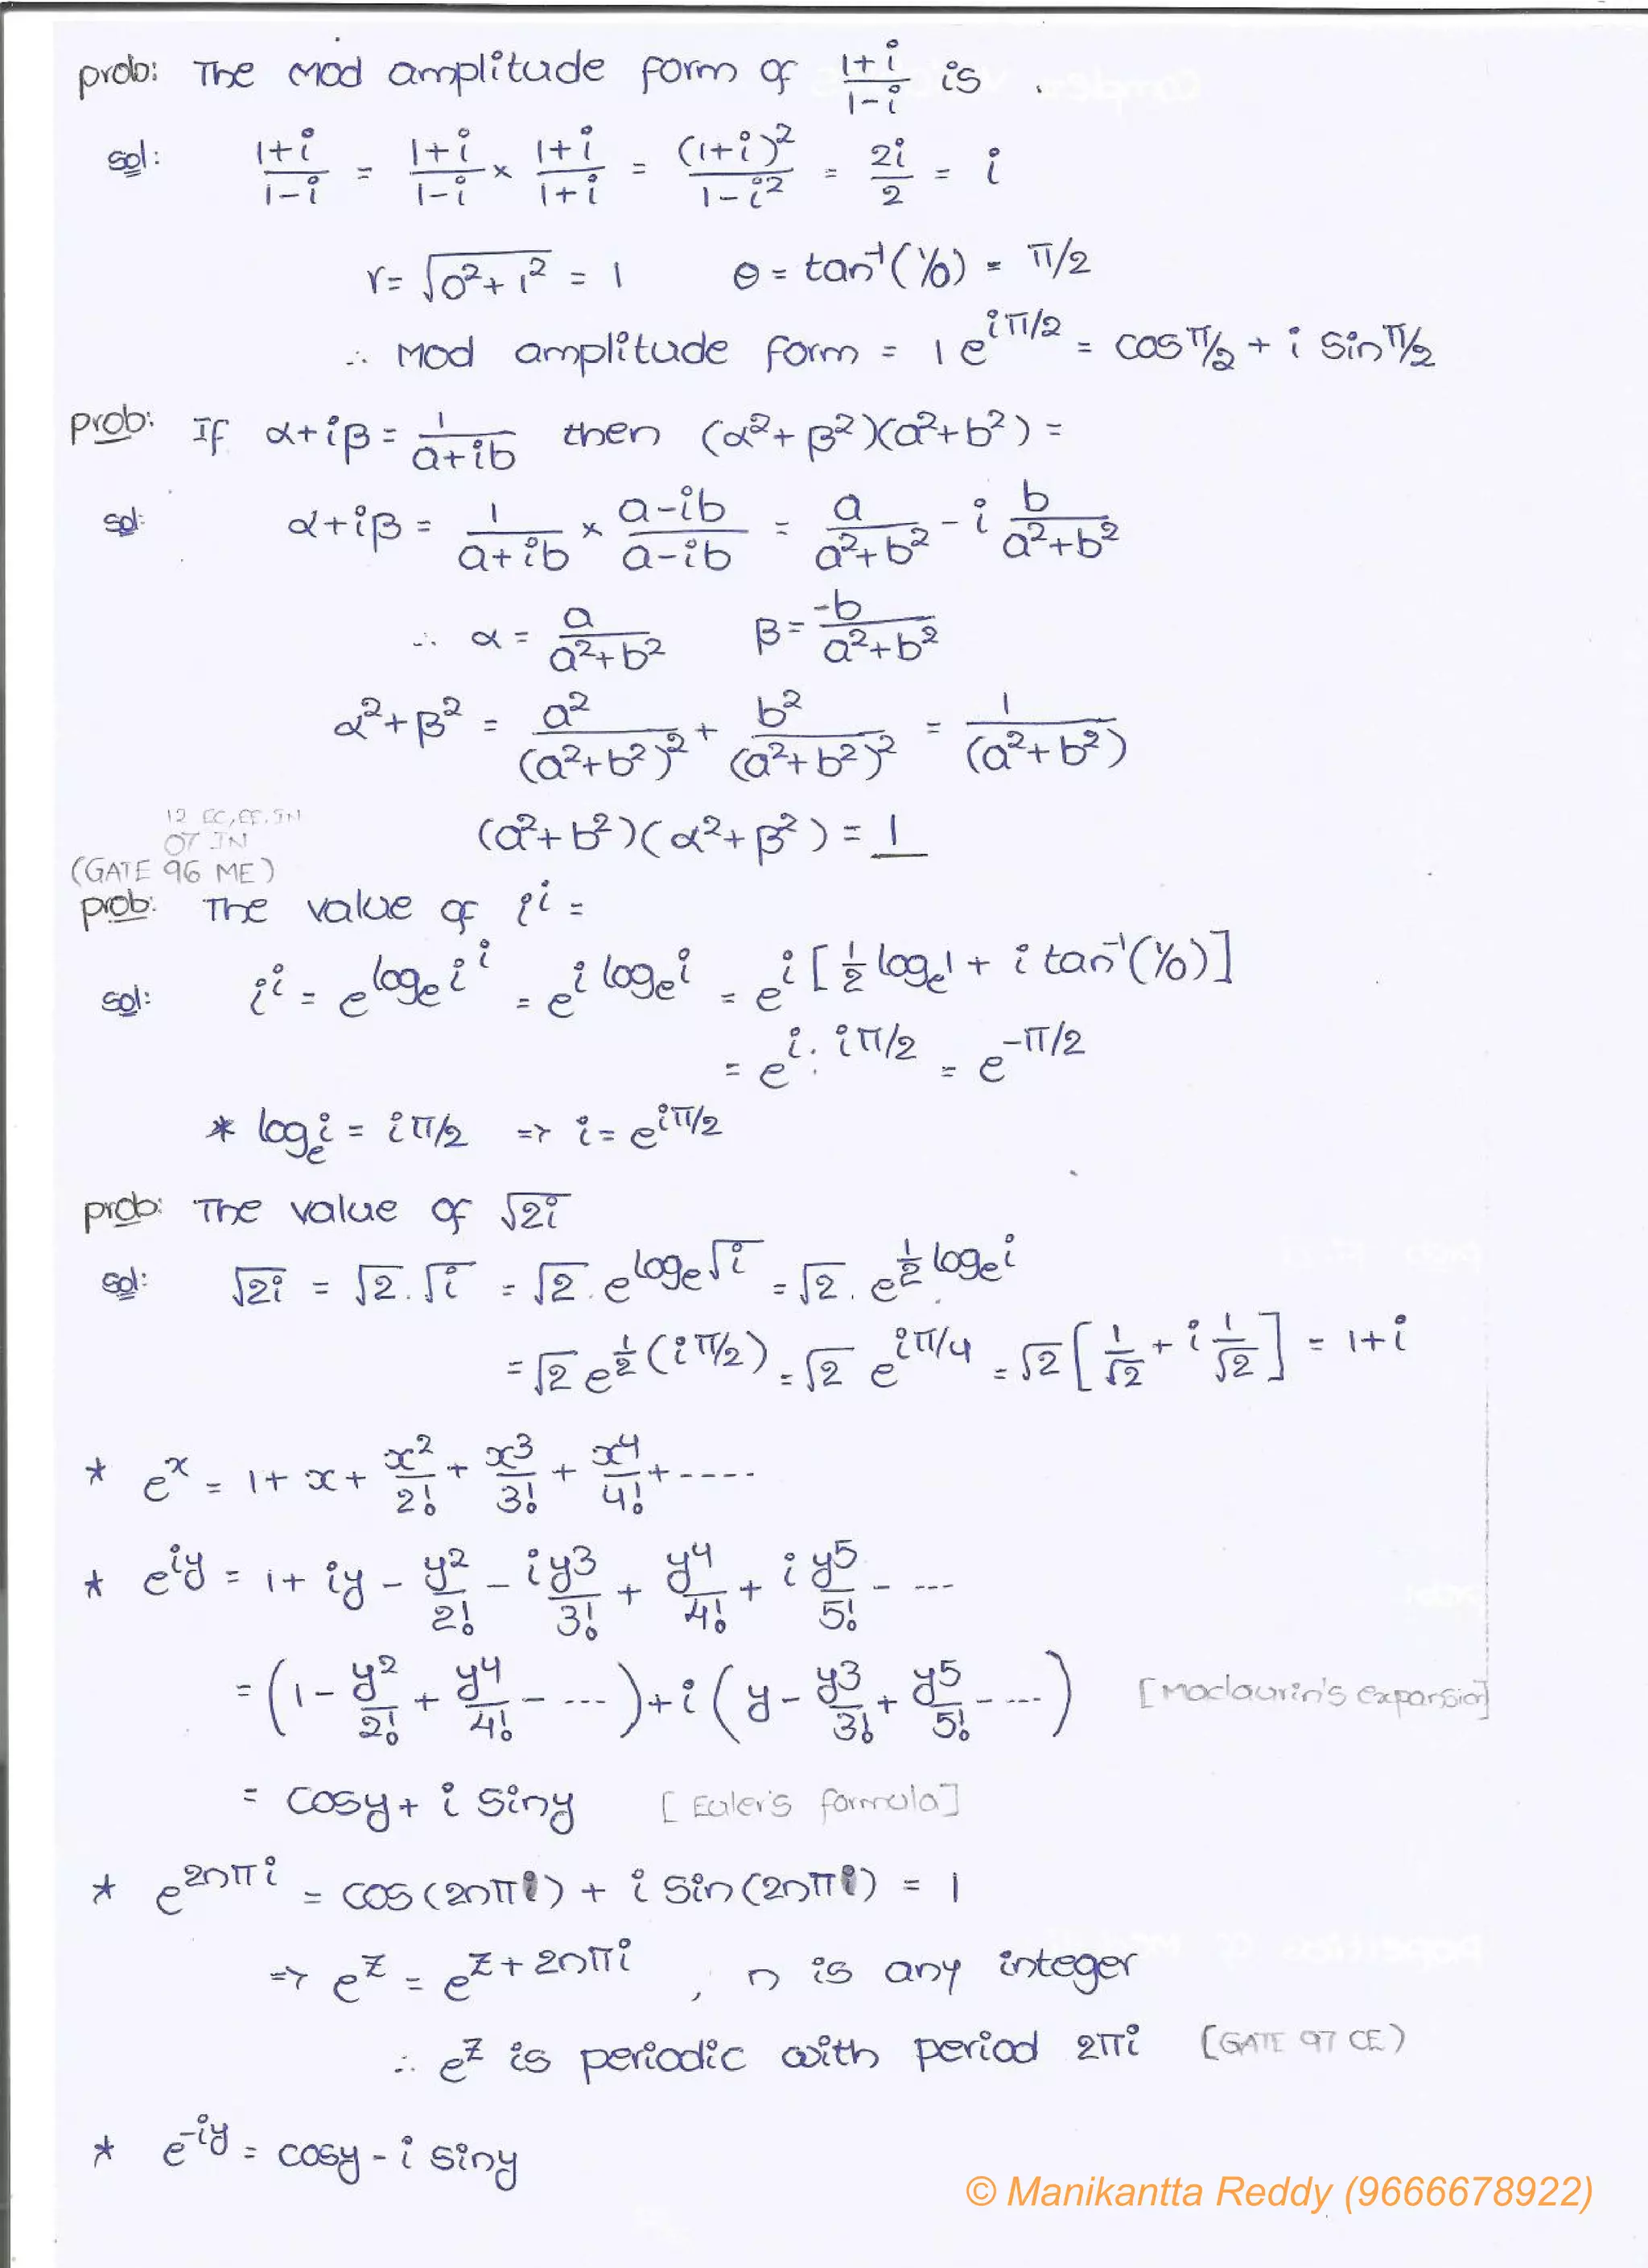 prob: The Mod amplitude form of (1+i)/(1-i) is .
sol: (1+i)/(1-i) = (1+i)/(1-i) × (1+i)/(1+i) = (1+i)²/(1-i²) = 2i/2 = i
r = √(0²+1²) = 1 θ = tan⁻¹(1/0) = π/2
∴ Mod amplitude form = 1 e^(iπ/2) = cos π/2 + i sin π/2
prob: If α+iβ = 1/(a+ib) then (α²+β²)(a²+b²) =
sol: α+iβ = 1/(a+ib) × (a-ib)/(a-ib) = a/(a²+b²) - i b/(a²+b²)
∴ α = a/(a²+b²) β = -b/(a²+b²)
α²+β² = a²/(a²+b²)² + b²/(a²+b²)² = 1/(a²+b²)
12 EC,EE,IN
07 IN
(a²+b²)(α²+β²) = 1
(GATE 96 ME)
prob: The value of i^i =
sol: i^i = e^(logₑ i^i) = e^(i logₑ i) = e^(i[½ logₑ 1 + i tan⁻¹(1/0)])
= e^(i·iπ/2) = e^(-π/2)
* logₑ i = iπ/2 ⇒ i = e^(iπ/2)
prob: The value of √2i
sol: √2i = √2.√i = √2.e^(logₑ √i) = √2.e^(½ logₑ i)
= √2 e^(½(iπ/2)) = √2 e^(iπ/4) = √2 [1/√2 + i 1/√2] = 1+i
* e^x = 1 + x + x²/2! + x³/3! + x⁴/4! + -----
* e^(iy) = 1 + iy - y²/2! - iy³/3! + y⁴/4! + i y⁵/5! - ---
= (1 - y²/2! + y⁴/4! - ...) + i (y - y³/3! + y⁵/5! - ...) [Maclaurin's expansion]
= cosy + i siny [Euler's formula]
* e^(2nπi) = cos(2nπi) + i sin(2nπi) = 1
⇒ e^z = e^(z+2nπi) , n is any integer
∴ e^z is periodic with period 2πi (GATE 97 CE)
* e^(-iy) = cosy - i siny
© Manikantta Reddy (9666678922)